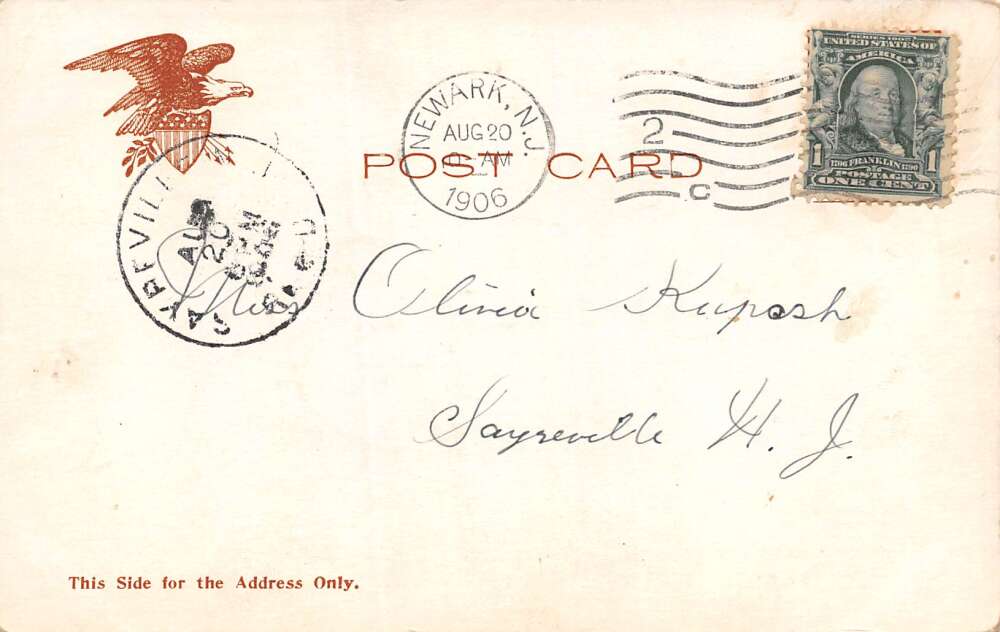 NEWARK, N.J.
AUG 20
AM
1906
2
C
SERIES 1902
UNITED STATES OF
AMERICA
1706 FRANKLIN 1790
1 POSTAGE 1
ONE CENT
POST CARD
SAYREVILL
AUG
20
AM
REC'D
Miss Olivia Kuposh
Sayreville N. J.
This Side for the Address Only.